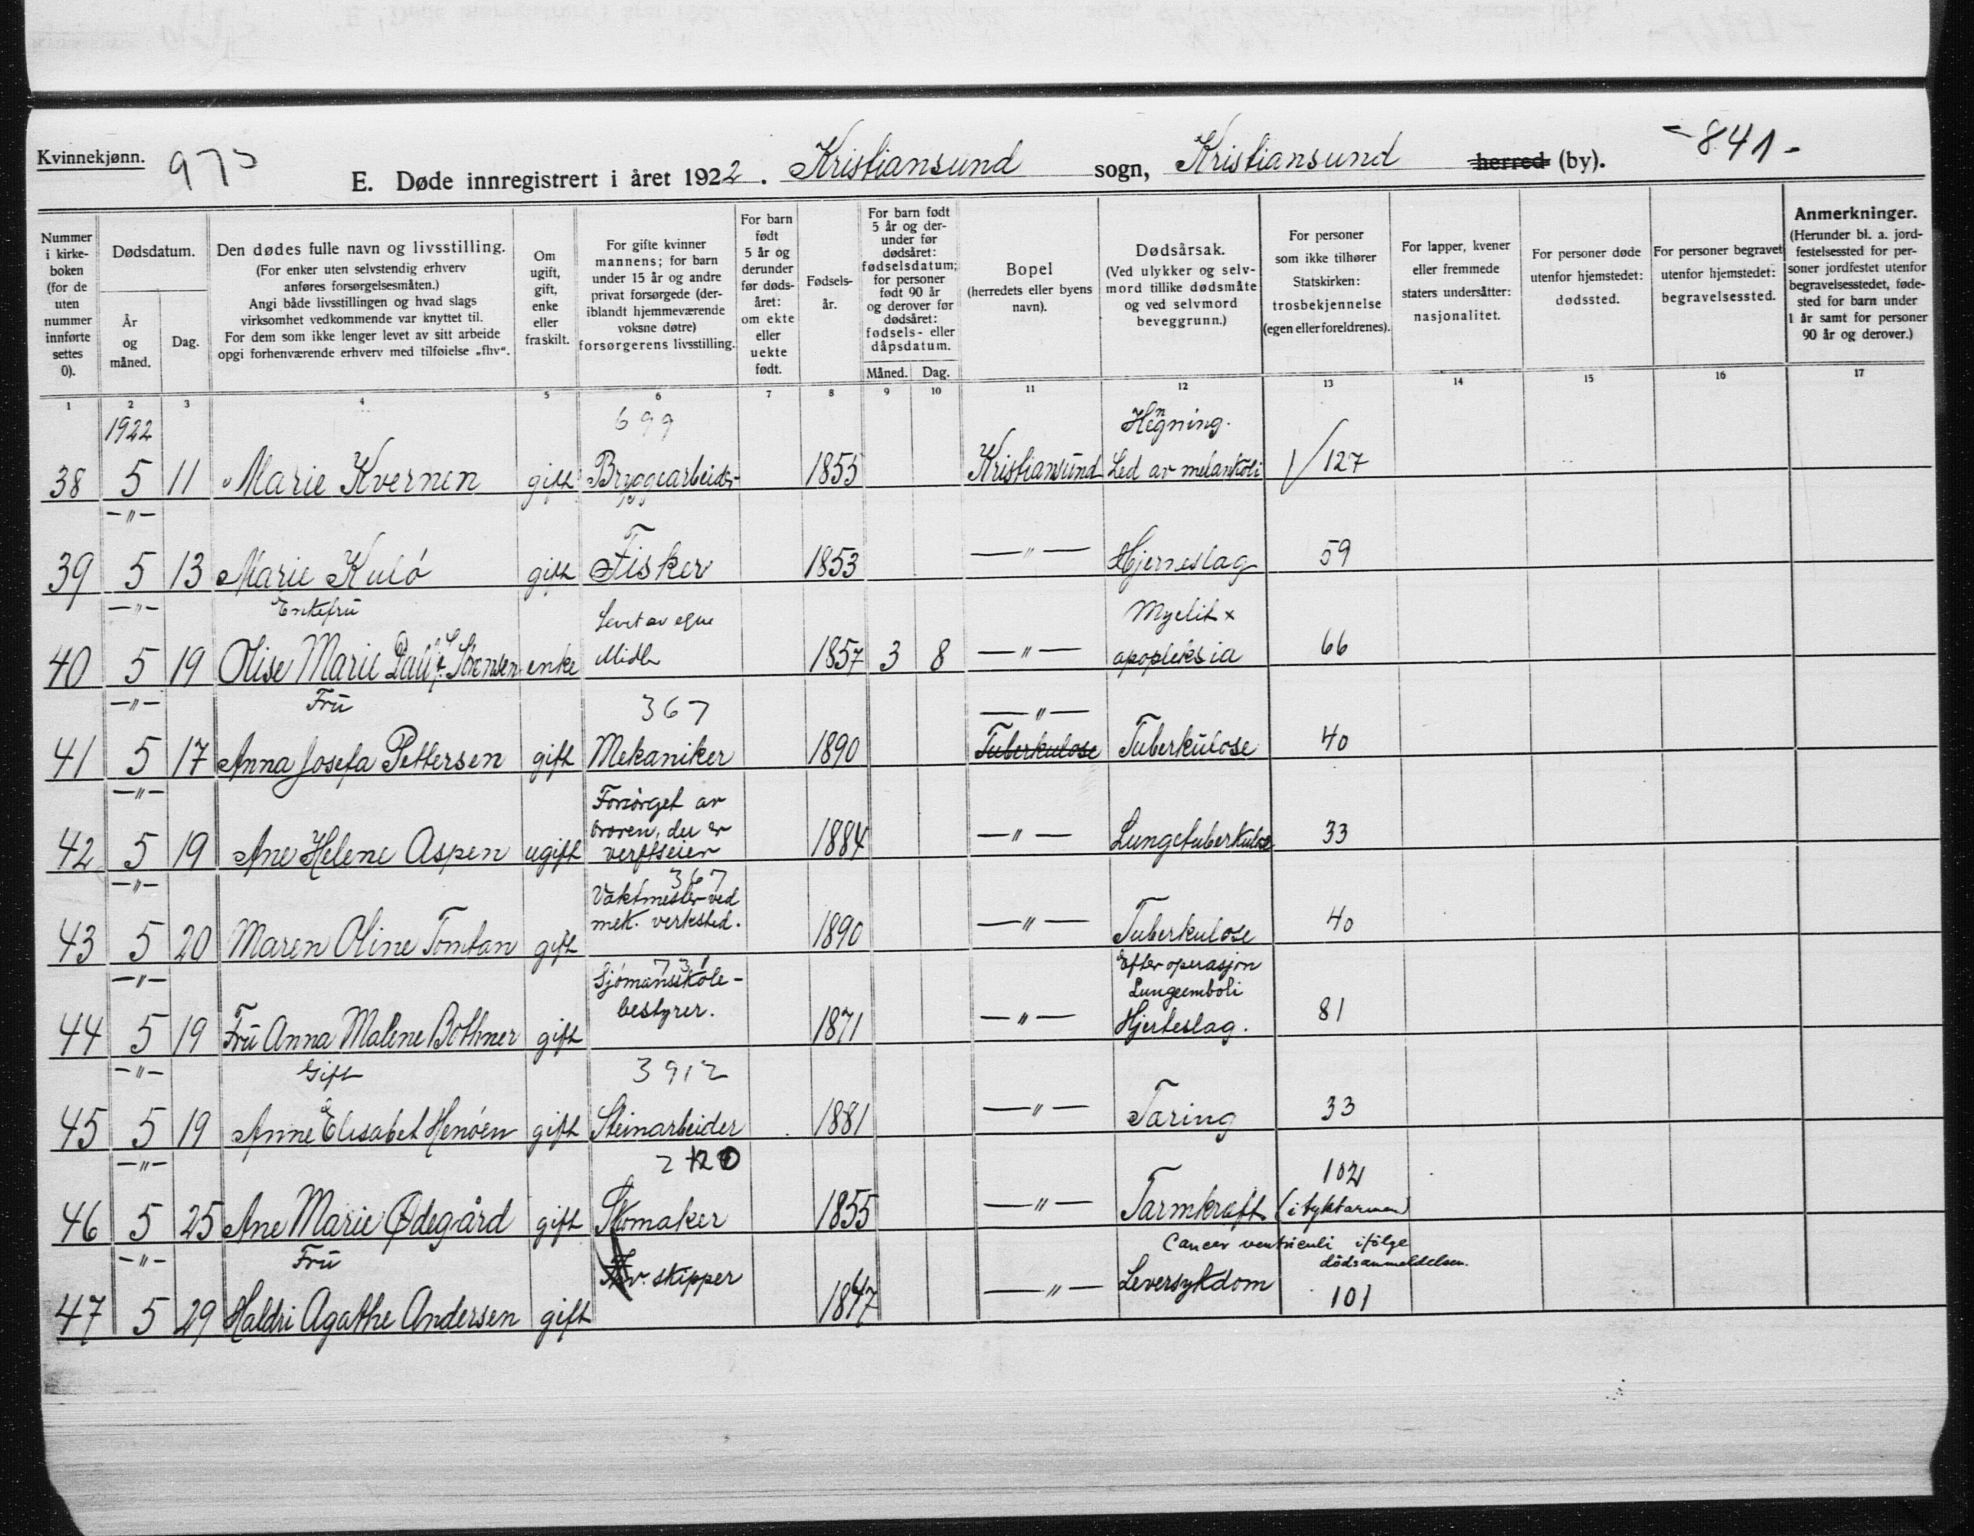 Kvinnekjønn. 975 -841-
E. Døde innregistrert i året 1922. Kristiansund sogn, Kristiansund herred (by).
Nummer i kirkeboken (for de uten nummer innførte settes 0).
Dødsdatum.
År og måned.
Dag.
Den dødes fulle navn og livsstilling.
(For enker uten selvstendig erhverv anføres forsørgelsesmåten.)
Angi både livsstillingen og hvad slags virksomhet vedkommende var knyttet til.
For dem som ikke lenger levet av sitt arbeide opgi forhenværende erhverv med tilføielse „fhv“.
Om ugift, gift, enke eller fraskilt.
For gifte kvinner mannens; for barn under 15 år og andre privat forsørgede (deriblandt hjemmeværende voksne døtre) forsørgerens livsstilling.
For barn født 5 år og derunder før dødsåret: om ekte eller uekte født.
Fødselsår.
For barn født 5 år og derunder før dødsåret: fødselsdatum; for personer født 90 år og derover før dødsåret: fødsels- eller dåpsdatum.
Måned. Dag.
Bopel (herredets eller byens navn).
Dødsårsak. (Ved ulykker og selvmord tillike dødsmåte og ved selvmord beveggrunn.)
For personer som ikke tilhører Statskirken: trosbekjennelse (egen eller foreldrenes).
For lapper, kvener eller fremmede staters undersåtter: nasjonalitet.
For personer døde utenfor hjemstedet: dødssted.
For personer begravet utenfor hjemstedet: begravelsessted.
Anmerkninger. (Herunder bl. a. jordfestelsessted for personer jordfestet utenfor begravelsesstedet, fødested for barn under 1 år samt for personer 90 år og derover.)
1 2 3 4 5 6 7 8 9 10 11 12 13 14 15 16 17
1922 699 Hengning.
38 5 11 Marie Kvernen gift Bryggearbeider 1855 Kristiansund Led av melankoli 127
—"—
39 5 13 Marie Kulö gift Fisker 1853 —"— Hjerneslag 59
—"— Enkefru Levet av egne Myelit +
40 5 19 Olise Marie Sörensen enke Midler 1857 3 8 —"— apopleksia 66
—"— Frü 367 —"—
41 5 17 Anna Josefa Pettersen gift Mekaniker 1890 Tuberkulose Tuberkulose 40
—"— Forsörget av
broren, der er
42 5 19 Ane Helene Aspen ugift verftseier 1884 —"— Lungetuberkulose 33
—"— 367
Vaktmester ved
mek. verksted.
43 5 20 Maren Oline Tomtan gift 1890 —"— Tuberkulose 40
—"— 731 Efter operasjon
Sjömansskole- Lungeemboli
bestyrer.
44 5 19 Frü Anna Malene Bothner gift 1871 —"— Hjerteslag. 81
—"— Gift 3912
45 5 19 Anne Elisabet Henöen gift Steinarbeider 1881 —"— Taring 33
—"— 2120 102
46 5 25 Ane Marie Ødegård gift Skomaker 1855 —"— Tarmkræft (i tyktarmen)
—"— Frü Cancer ventriculi ifölge
dödsanmeldelsen.
skipper
47 5 29 Haldri Agathe Andersen gift 1847 —"— Leversykdom 101